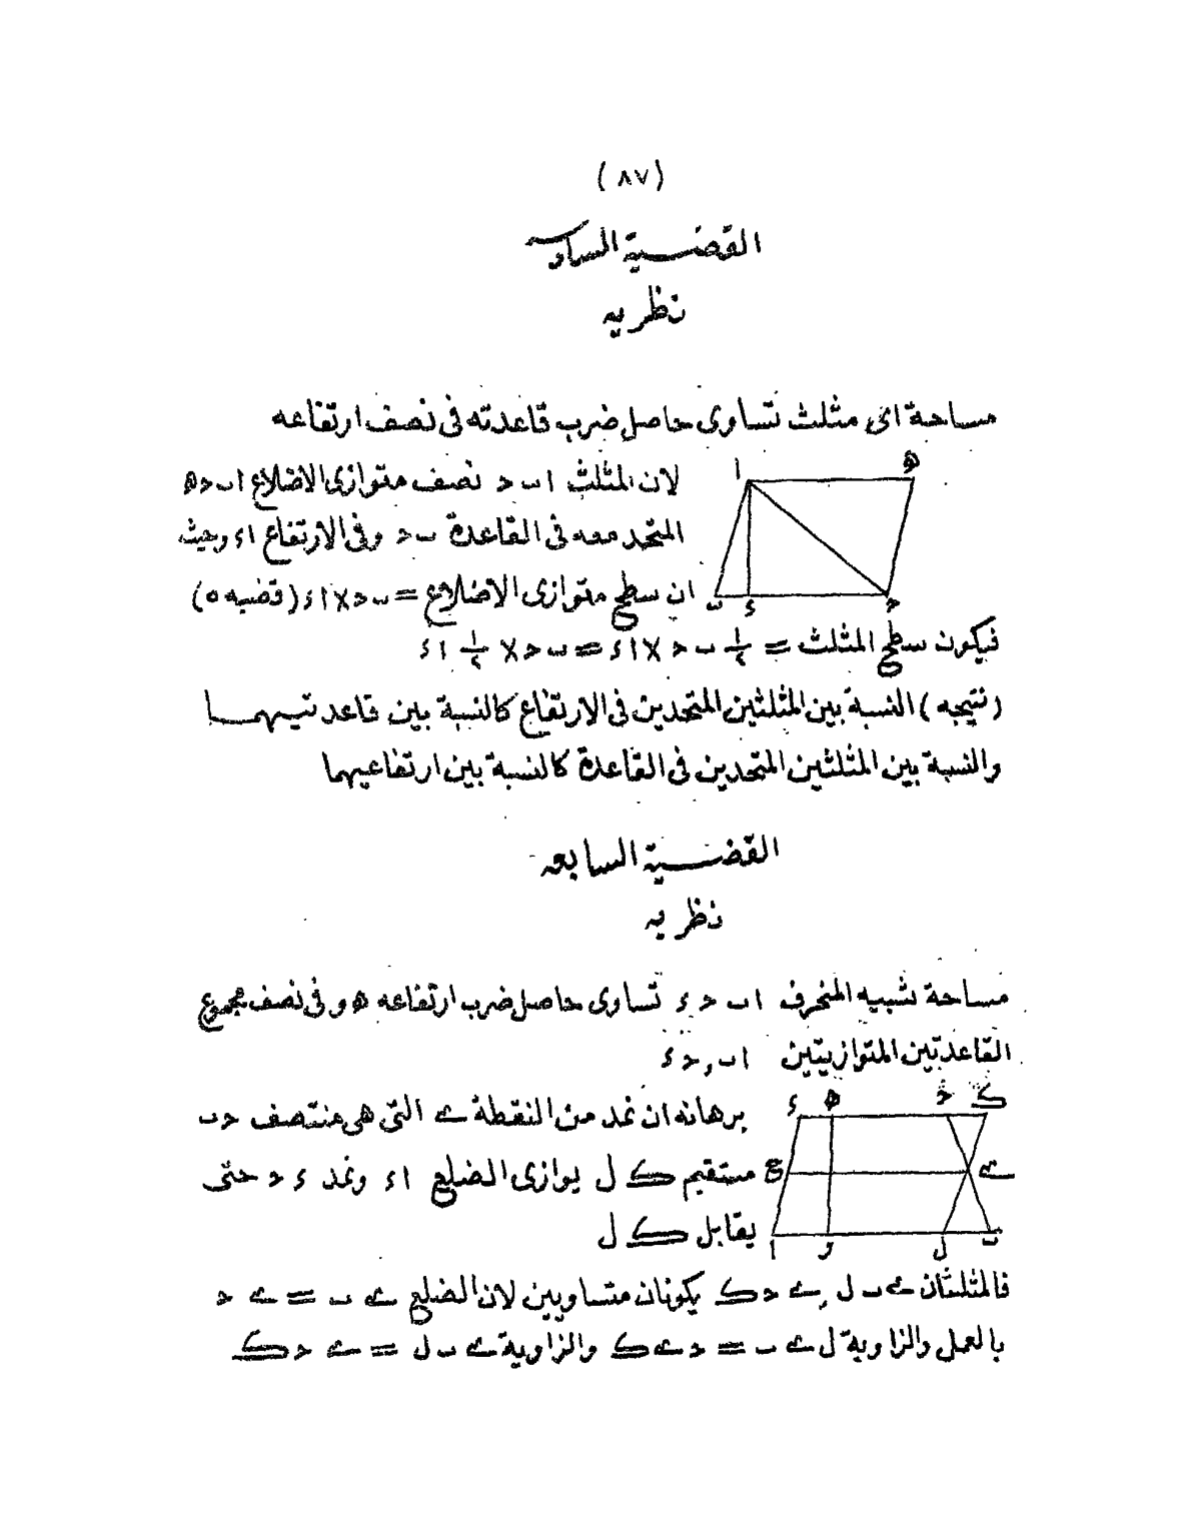 (٨٧)
القضية السادسه
نظريه
مساحة اى مثلث تساوى حاصل ضرب قاعدته فى نصف ارتفاعه
ا ه
لان المثلث ا ب د نصف متوازى الاضلاع ا ب د ه
المتحد معه فى القاعدة ب د وفى الارتفاع ا ء وحيث
ان سطح متوازى الاضلاع = ب د × ا ء (قضيه ٥)
ب ء د
فيكون سطح المثلث = ١/٢ ب د × ا ء = ب د × ١/٢ ا ء
(نتيجه) النسبة بين المثلثين المتحدين فى الارتفاع كالنسبة بين قاعدتيهما
والنسبة بين المثلثين المتحدين فى القاعدة كالنسبة بين ارتفاعيهما
القضية السابعه
نظريه
مساحة شبيه المنحرف ا ب د ء تساوى حاصل ضرب ارتفاعه ه و فى نصف مجموع
القاعدتين المتوازيتين ا ب , د ء
ء ه د ك
برهانه ان نمد من النقطة ى التى هى منتصف د ب
مستقيم ك ل يوازى الضلع ا ء ونمد ء د حتى
ع ى
يقابل ك ل
ا و ل ب
فالمثلثان ى ب ل , ى د ك يكونان متساويين لان الضلع ى ب = ى د
بالعمل والزاوية ل ى ب = د ى ك والزاوية ى ب ل = ى د ك